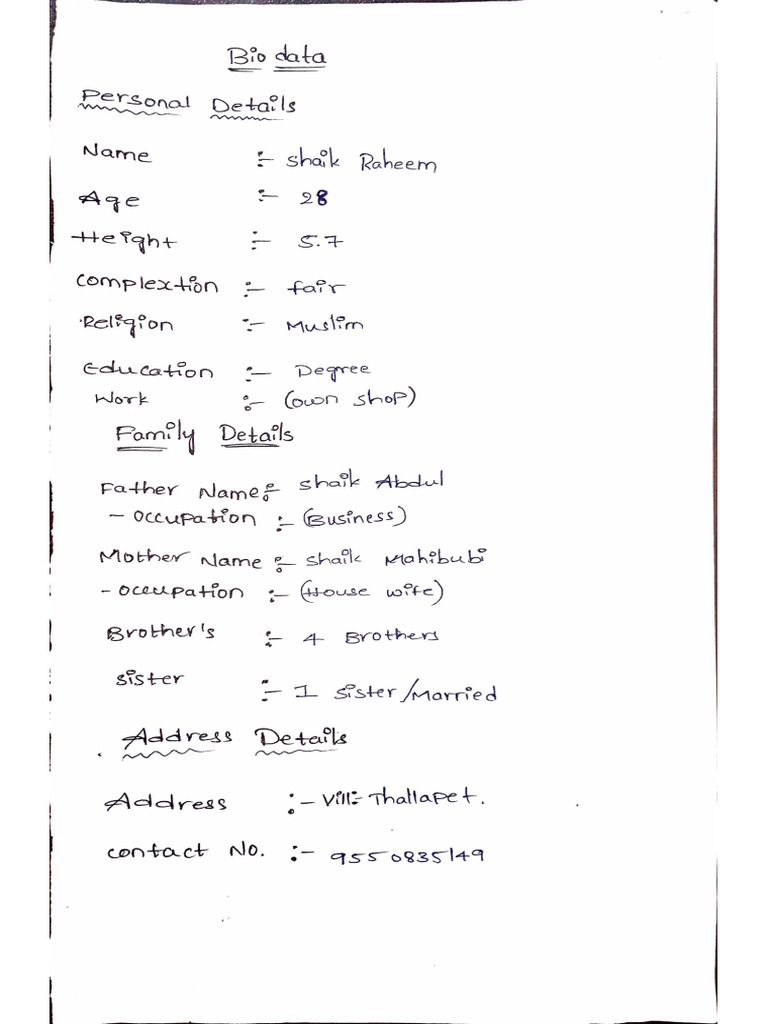 Bio data
Personal Details
Name :- Shaik Raheem
Age :- 28
Height :- 5.7
Complextion :- fair
Religion :- Muslim
Education :- Degree
Work :- (own shop)
Family Details
Father Name :- Shaik Abdul
- Occupation :- (Business)
Mother Name :- Shaik Mahibubi
- Occupation :- (House wife)
Brother's :- 4 Brothers
Sister :- 1 Sister/Married
Address Details
Address :- Vill:- Thallapet.
Contact No. :- 9550835149